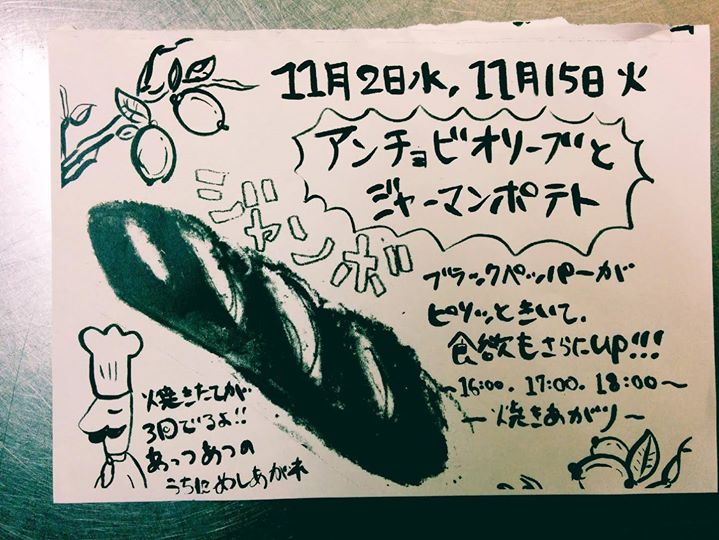 11月2日水, 11月15日火
アンチョビオリーブと
ジャーマンポテト
ジャンボ
ブラックペッパーが
ピリッときいて、
食欲もさらにup!!!
～16:00. 17:00. 18:00～
ー焼きあがり～
焼きたてが
3回でるよ!!
あっつあつの
うちにめしあが